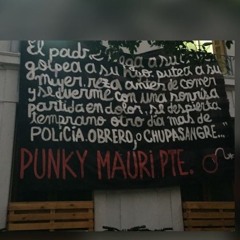 El padre llega a su casa
golpea a su hijo, putea a su
mujer, reza antes de comer
y se duerme con una sonrisa
partida en dolor. se despierta
temprano otro día mas de
POLICIA, OBRERO, o CHUPASANGRE..."
PUNKY MAURI PTE.